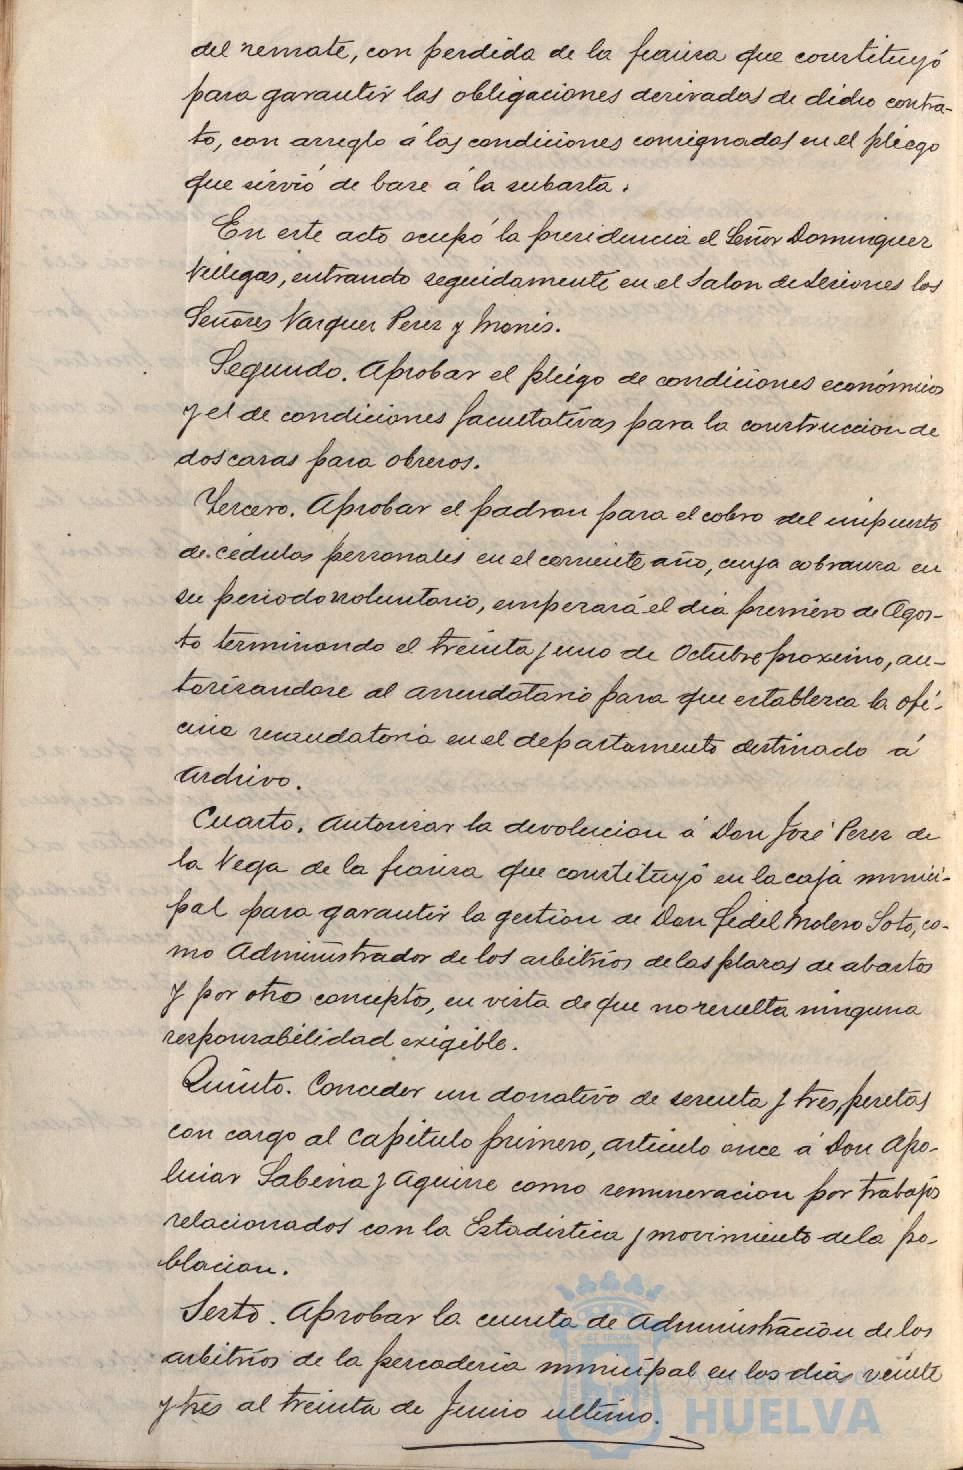 del remate, con perdida de la fianza que constituyó
para garantir las obligaciones derivadas de dicho contra-
to, con arreglo á las condiciones consignadas en el pliego
que sirvió de base á la subasta.
En este acto ocupó la presidencia el Señor Dominguez
Villegas, entrando seguidamente en el Salon de Sesiones los
Señores Vazquez Perez y Monis.
Segundo. Aprobar el pliego de condiciones económicas
y el de condiciones facultativas para la construccion de
dos casas para obreros.
Tercero. Aprobar el padron para el cobro del impuesto
de cédulas personales en el corriente año, cuya cobranza en
su periodo voluntario, empezará el dia primero de Agos-
to terminando el treinta y uno de Octubre proximo, au-
torizandose al arrendatario para que establezca la ofi-
cina recaudatoria en el departamento destinado á
Archivo.
Cuarto. Autorizar la devolucion á Don José Perez de
la Vega de la fianza que constituyó en la caja munici-
pal para garantir la gestion de Don Fidel Molero Soto, co-
mo Administrador de los arbitrios de las plazas de abastos
y por otros conceptos, en vista de que no resulta ninguna
responsabilidad exigible.
Quinto. Conceder un donativo de sesenta y tres pesetas
con cargo al Capitulo primero, articulo once á Don Apo-
linar Sabina y Aguirre como remuneracion por trabajos
relacionados con la Estadistica y movimiento de la po-
blacion.
Sexto. Aprobar la cuenta de Administracion de los
arbitrios de la pescaderia municipal en los dias veinte
y tres al treinta de Junio ultimo.
HUELVA